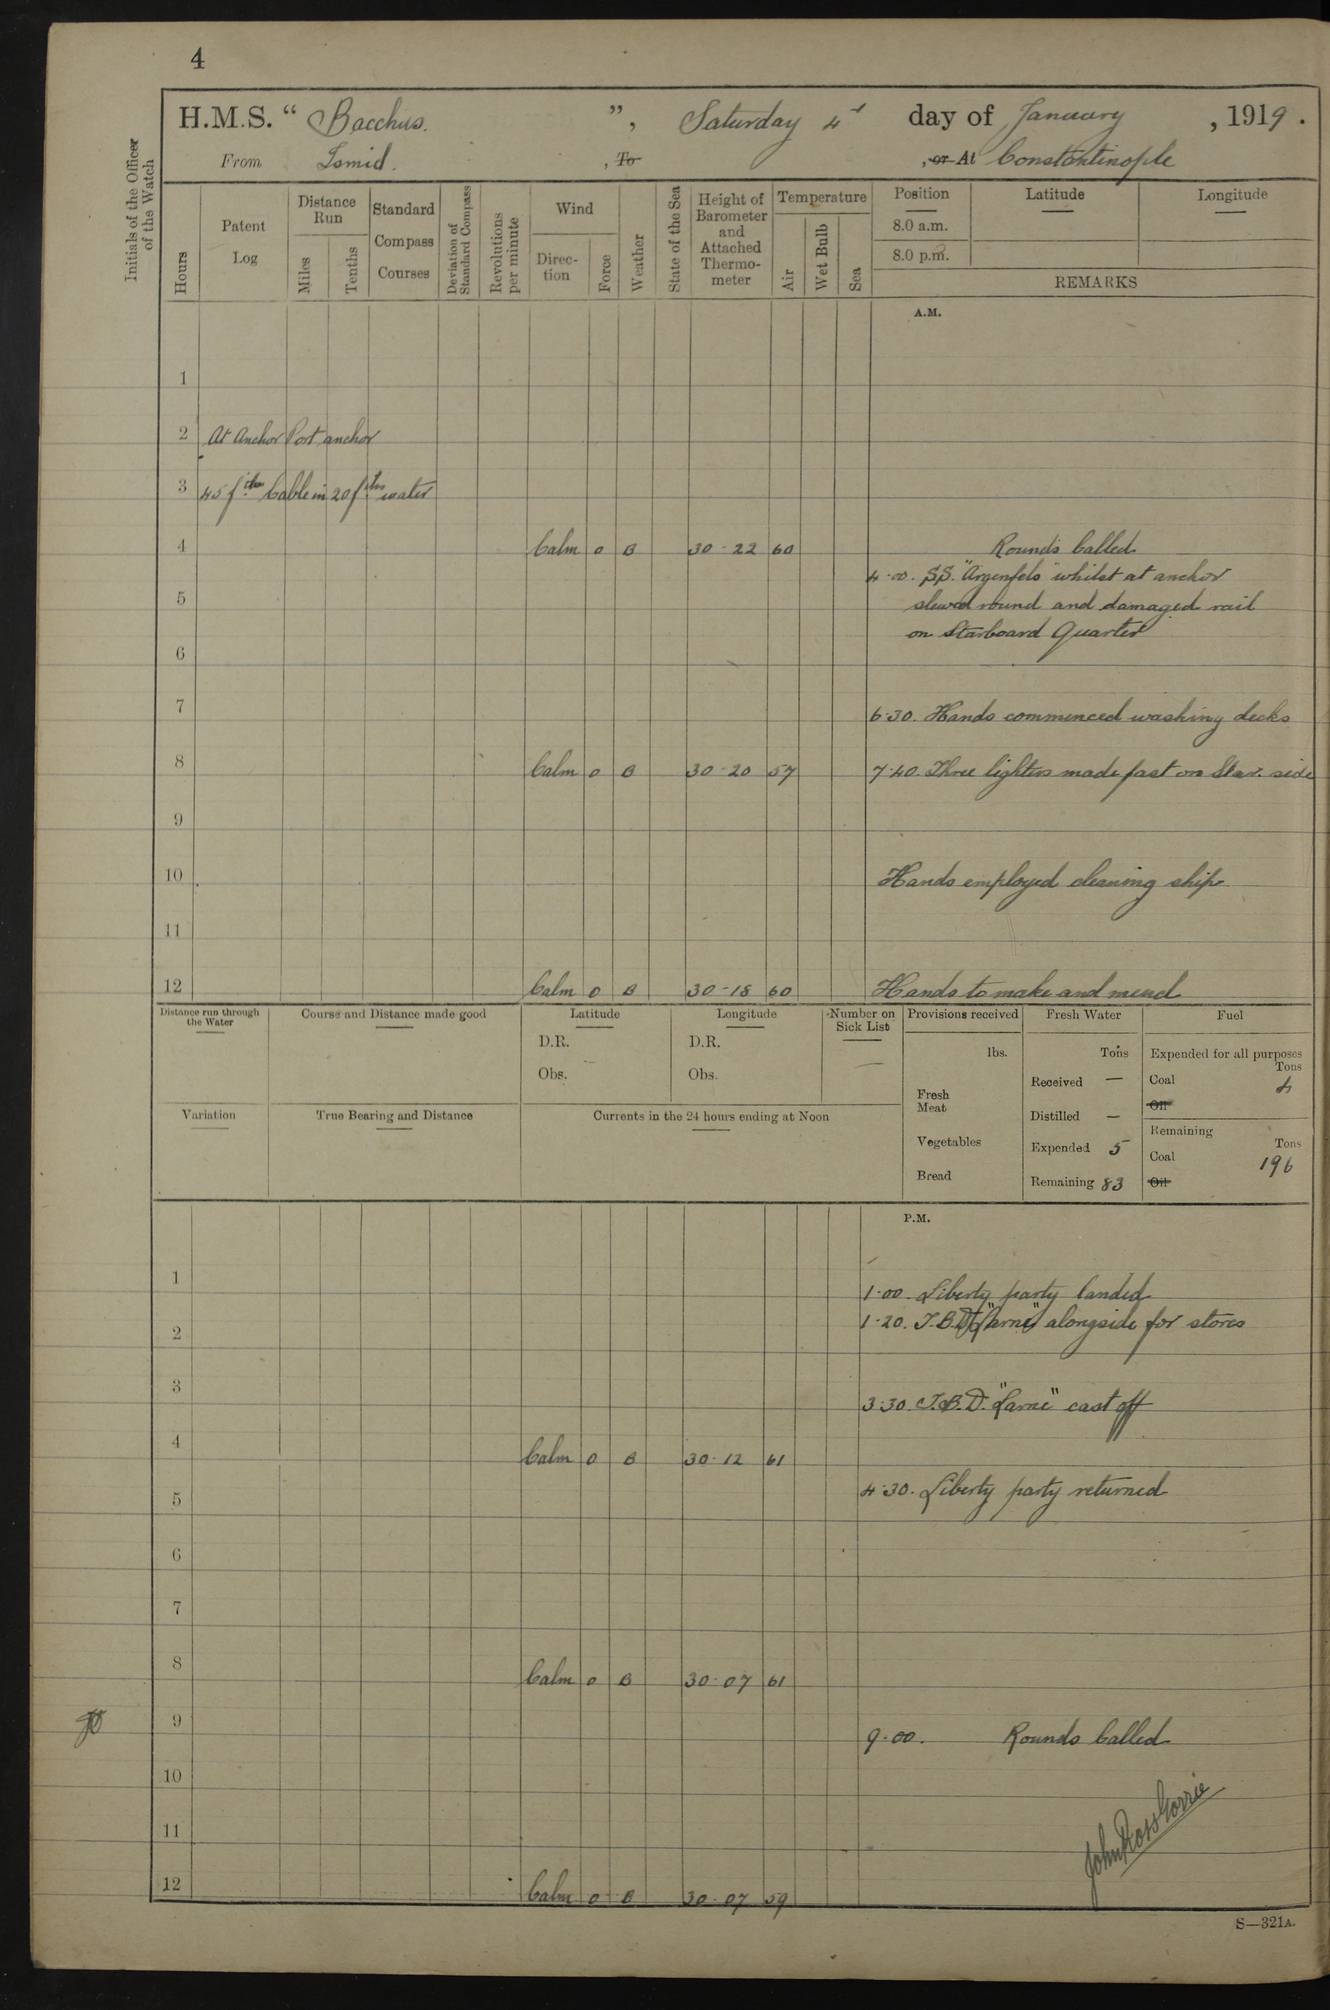 4
H.M.S. “ Bacchus. ”, Saturday 4th day of January, 1919.
From Ismid. , To , or At Constantinople
Initials of the Officer of the Watch
Hours
Patent Log
Distance Run
Miles
Tenths
Standard Compass Courses
Deviation of Standard Compass
Revolutions per minute
Wind
Direction
Force
Weather
State of the Sea
Height of Barometer and Attached Thermometer
Temperature
Air
Wet Bulb
Sea
Position
8.0 a.m.
8.0 p.m.
Latitude
Longitude
REMARKS
A.M.
1
2 At Anchor Port anchor
3 45 fthms Cable in 20 fthms water
4 Calm 0 B 30·22 60 Rounds Called
4·00. S.S. "Argenfels" whilst at anchor
5 slewed round and damaged rail
on Starboard Quarter
6
7 6·30. Hands commenced washing decks
8 Calm 0 B 30·20 57 7·40. Three lighters made fast on Star. side
9
10 Hands employed cleaning ship
11
12 Calm 0 B 30·18 60 Hands to make and mend
Distance run through the Water
Course and Distance made good
Latitude
D.R.
Obs.
Longitude
D.R.
Obs.
Number on Sick List
—
Variation
True Bearing and Distance
Currents in the 24 hours ending at Noon
Provisions received
lbs.
Fresh Meat
Vegetables
Bread
Fresh Water
Tons
Received —
Distilled —
Expended 5
Remaining 83
Fuel
Expended for all purposes
Tons
Coal 4
Oil
Remaining
Tons
Coal 196
Oil
P.M.
1 1·00. Liberty party landed
1·20. T.B.D. "Larne" alongside for stores
2
3 3·30. T.B.D. "Larne" cast off
4 Calm 0 B 30·12 61
5 4·30. Liberty party returned
6
7
8 Calm 0 B 30·07 61
9 9·00. Rounds Called
10
11
John Ross Gorrie
12 Calm 0 B 30·07 59
S—321A.